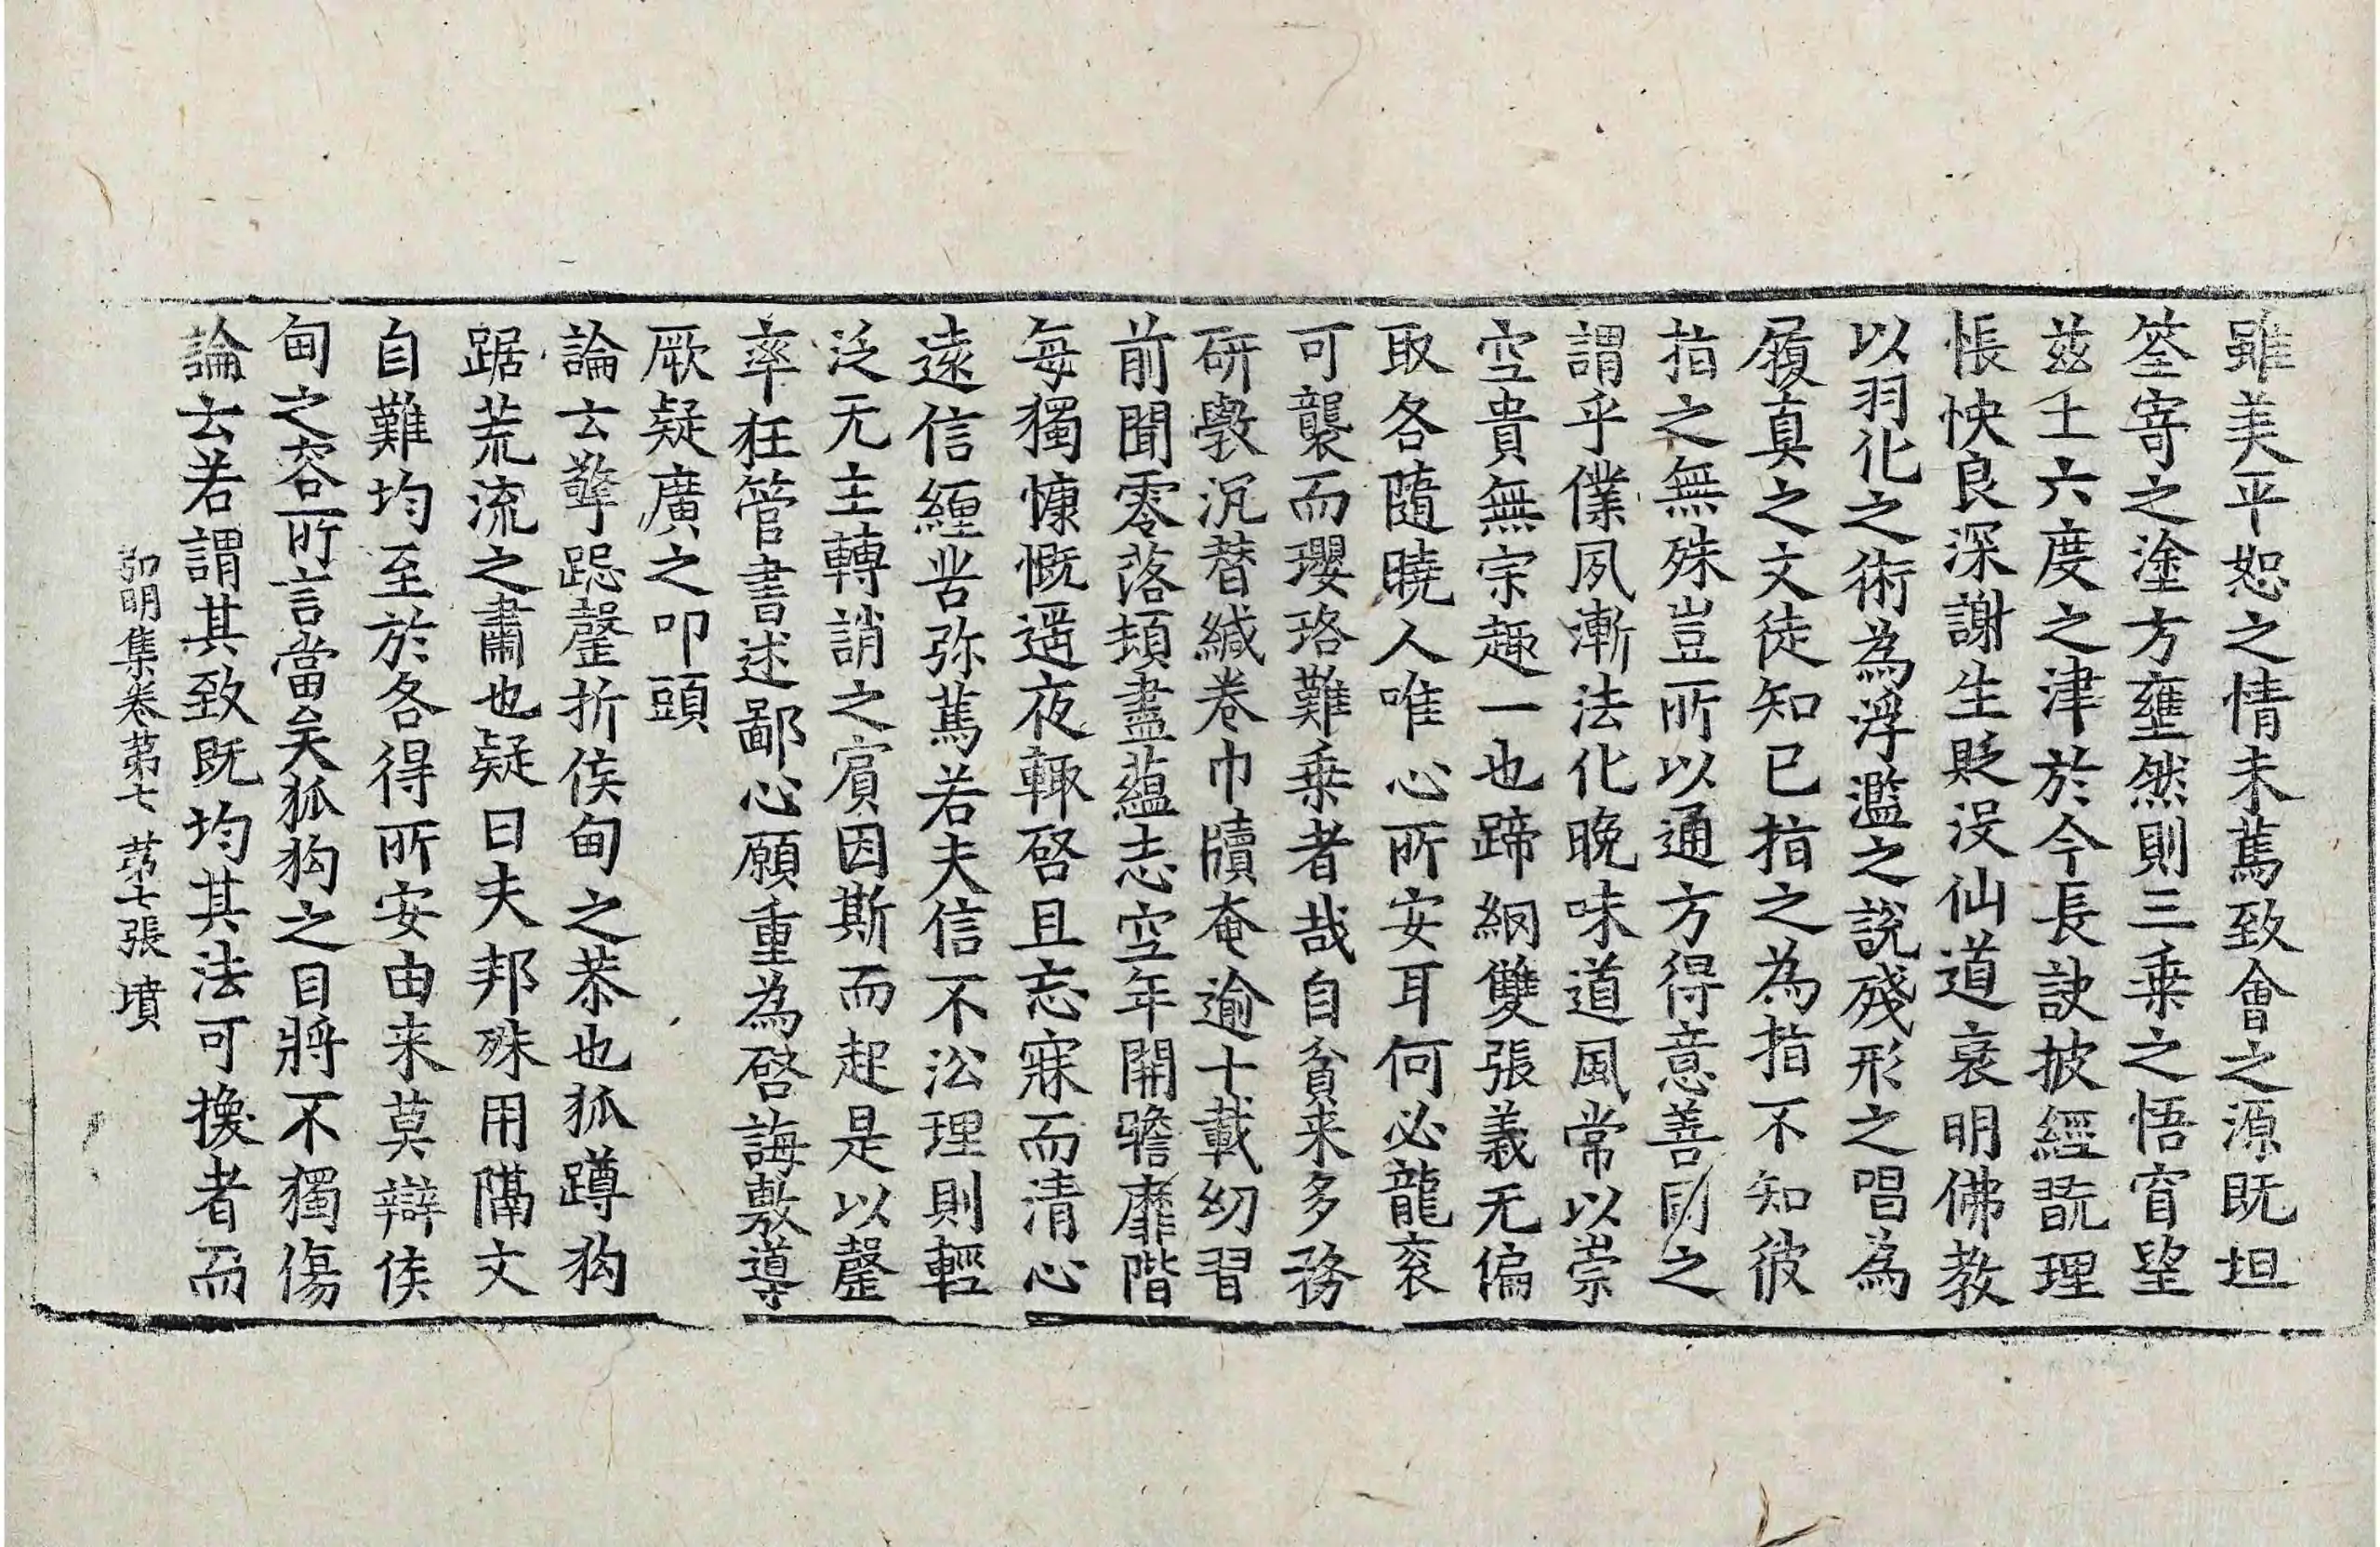 雖美平恕之情未蔿致會之源既坦
筌寄之塗方壅然則三乗之悟窅望
茲土六度之津於今長訣披經翫理
悵怏良深謝生貶没仙道襃明佛教
以羽化之術為浮濫之説殘形之唱為
履真之文徒知已指之為指不知彼
指之無殊豈所以通方得意善同之
謂乎僕夙漸法化晚味道風常以崇
空貴無宗趣一也蹄網雙張義无偏
取各隨曉人唯心所安耳何必龍衮
可襲而瓔珞難乗者哉自貧来多務
研斅沉替緘卷巾牘奄逾十載幼習
前聞零落頓盡藴志空年開瞻靡階
每獨慷慨遥夜輒啓旦忘寐而清心
遠信纏苦弥蔿若夫信不沿理則輕
泛无主轉誚之賔因斯而起是以罄
率狂管書述鄙心願重為啓誨敷導
厥疑廣之叩頭
論去擎跽罄折侯甸之恭也狐蹲狗
踞荒流之肅也疑曰夫邦殊用隔文
自難均至於各得所安由来莫辯侯
甸之容所言當矣狐狗之目將不獨傷
論去若謂其致既均其法可換者而
弘明集卷第七 第七張 墳